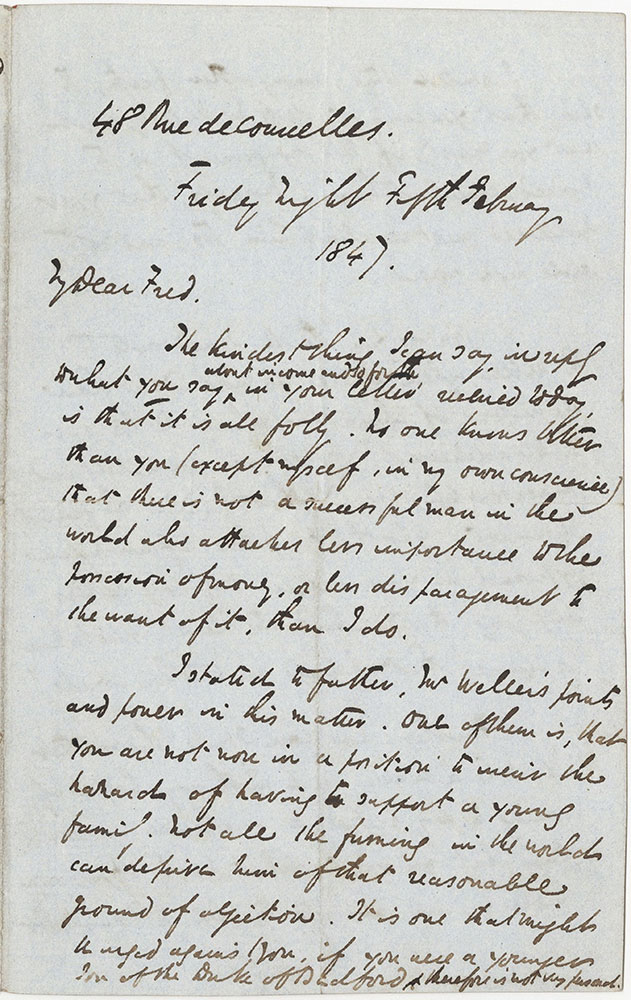 48 Rue de Courcelles.
Friday Night Fifth February
1847.
My Dear Fred.
The kindest thing I can say, in reply
about income and so forth
to what you say, ^ in your letter received today,
is that it is all folly. No one knows better
than you (except myself, in my own conscience)
that there is not a successful man in the
world who attaches less importance to the
possession of money, or less disparagement to
the want of it, than I do.
I stated to father, Mr Weller's points
and power in this matter. One of them is, that
you are not now in a position to incur the
hazard of having to support a young
family. Not all the fuming in the world
can deprive him of that reasonable
ground of objection. It is one that might
be urged against you, if you were a younger
son of the Duke of Bedford, & therefore is not very personal.